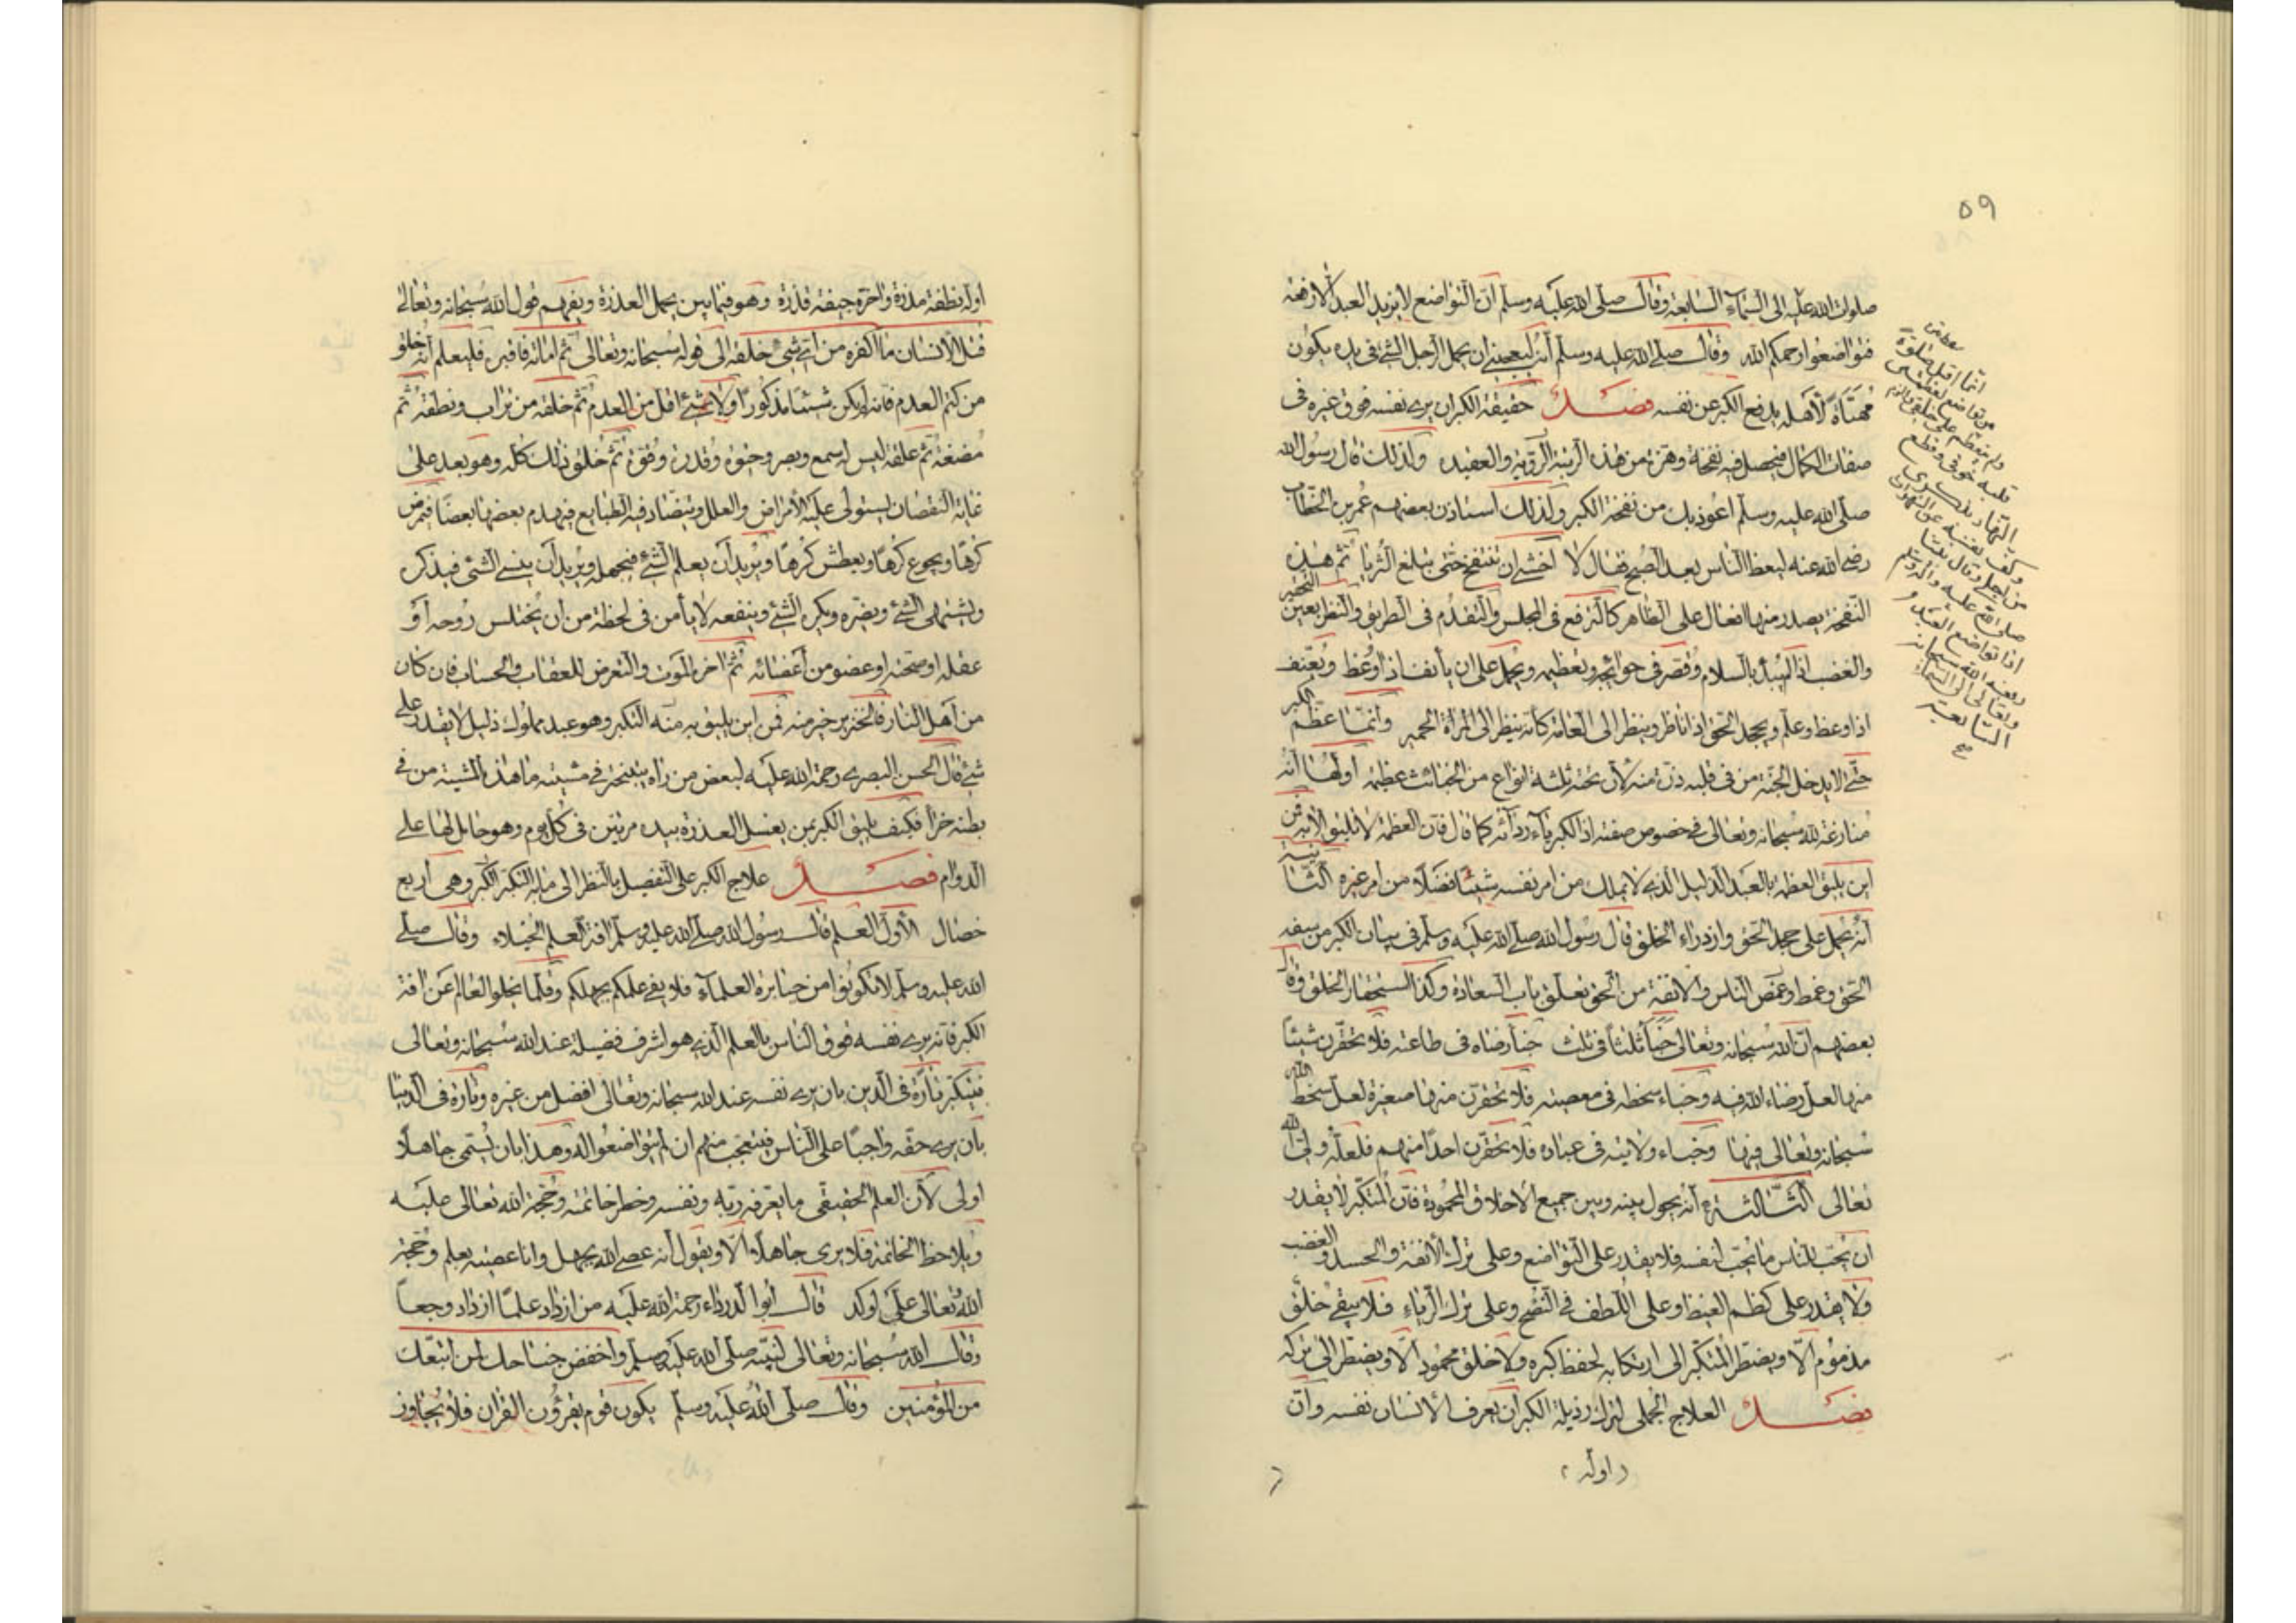 ٥٩
صلوات الله عليه الى السمآء السابعة وقال صلى الله عليه وسلم ان التواضع لا يزيد العبد الا رفعة
فتواضعوا رحمكم الله وقال صلى الله عليه وسلم انه ليعجبنى ان يحمل الرجل الشئ فى يده يكون
مهنأة لأهله يدفع الكبر عن نفسه فصل حقيقة الكبر ان يرى نفسه فوق غيره فى
صفات الكمال فيحصل فيه نفخة وهزة من هذه الرتبة الرؤية والعقيده ولذلك قال رسول الله
صلى الله عليه وسلم اعوذ بك من نفخة الكبر ولذلك استاذن بعضهم عمر بن الخطاب
رضى الله عنه ليعظ الناس بعد الصبح فقال لا اخشى ان تنتفخ حتى تبلغ الثريا ثم هذه
النفخة يصدر منها افعال على الظاهر كالترفع فى المجلس والتقدم فى الطريق والنظر بعين التحقير
والغضب اذا لم يبدأ بالسلام وقصر فى حوائجه وتعظيمه ويحمل على ان يأنف اذا وعظ ويعنف
اذا وعظ وعلم ويجحد الحق اذا ناظر وينظر الى العامة كأنه ينظر الى الحمير وانما عظم الكبر
حتى لا يدخل الجنة من فى قلبه ذرة منه لأن تحته ثلثة انواع من الخبائث عظيمة اولها انه
منازعة لله سبحانه وتعالى فى خصوص صفته اذ الكبرياء ردائه كما قال فان العظمة لا تليق الا به فمن
اين يليق العظمة بالعبد الذليل الذى لا يملك من امر نفسه شيئا فضلا من امر غيره الثانية
انه يحمل على جحد الحق وازدراء الخلق قال رسول الله صلى الله عليه وسلم فى بيان الكبر من سفه
الحق وغمط او غمص الناس والانفة من الحق تغلق باب السعادة وكذا استحقار الخلق وقال
بعضهم ان الله سبحانه وتعالى خبأ ثلثا فى ثلث خبأ رضاه فى طاعته فلا تحقرن شيئا
منها لعل رضاء الله فيه وخباء سخطه فى معصيته فلا تحقرن منها صغيرة لعل سخط الله
سبحانه وتعالى فيها وخباء ولايته فى عباده فلا تحقرن احدا منهم فلعله ولى الله
تعالى الثالثة انه يحول بينه وبين جميع الاخلاق المحمودة فان المتكبر لا يقدر
ان يحب للناس ما يحب لنفسه فلا يقدر على التواضع وعلى ترك الأنفة والحسد والغضب
ولا يقدر على كظم الغيظ وعلى اللطف فى النصح وعلى ترك الرياء فلا يبقى خلق
مذموم الا ويضطر المتكبر الى ارتكابه لحفظ كبره ولا خلق محمود الا ويضطر الى تركه
فصل العلاج الجملى لترك رذيلة الكبر ان يعرف الانسان نفسه وان
اوله
انما اقبل صلوة
من تواضع لعظمتى
ولم يتعظم على خلقى والزم
قلبه خوفى وقطع
النهار بذكرى
وكف نفسه عن الشهوات
من اجلى وقال نبينا
صلى الله عليه وآله وسلم
اذا تواضع العبد
رفعه الله سبحانه
وتعالى الى السماء
السابعة
صح
اوله نطفة مذرة واخره جيفة قذرة وهو فيما بين يحمل العذرة ويفهم قول الله سبحانه وتعالى
قتل الأنسان ما اكفره من اى شئ خلقه الى قوله سبحانه وتعالى ثم اماته فاقبره فليعلم انه خلق
من كتم العدم فانه لم يكن شيئا مذكورا ولا شئ اقل من العدم ثم خلقه من تراب ونطفة ثم
مضغة ثم علقة ليس له سمع وبصر وحيوة وقدرة وقوة ثم خلق ذلك كله وهو بعد على
غاية النقصان يستولى عليه الأمراض والعلل ويتضاد فيه الطبايع فيهدم بعضها بعضا فيمرض
كرها ويجوع كرها ويعطش كرها ويريد ان يعلم الشئ فيجهله ويريد ان ينسى الشئ فيذكر
ويشتهى الشئ ويضره ويكره الشئ وينفعه لا يأمن فى لحظة من ان يختلس روحه او
عقله او صحته او عضو من اعضائه ثم اخره الموت والتعرض للعقاب والحساب فان كان
من اهل النار فالخنزير خير منه فمن اين يليق به منه التكبر وهو عبد مملوك ذليل لا يقدر على
شئ قال الحسن البصرى رحمة الله عليه لبعض من راه يتبختر فى مشيته ما هذه المشية من فى
بطنه خرأ فكيف يليق الكبر بمن يغسل العذرة بيده مرتين فى كل يوم وهو حامل لها على
الدوام فصل علاج الكبر على التفصيل بالنظر الى ما به التكبر الكبر وهى اربع
خصال الأول العلم قال رسول الله صلى الله عليه وسلم افة العلم الخيلاء وقال صلى
الله عليه وسلم لا تكونوا من جبابرة العلمآء فلا يفى علمكم بجهلكم وقلما يخلو العالم عن افة
الكبر فانه يرى نفسه فوق الناس بالعلم الذى هو اشرف فضيلة عند الله سبحانه وتعالى
فيتكبر تارة فى الدين بان يرى نفسه عند الله سبحانه وتعالى افضل من غيره وتارة فى الدنيا
بان يرى حقه واجبا على الناس فيتعجب منهم ان لم يتواضعوا له وهذا بان يسمى جاهلا
اولى لأن العلم الحقيقى ما يعرفه ربه ونفسه وخطر خاتمته وحجة الله تعالى عليه
ويلاحظ الخاتمة فلا يرى جاهلا الا ويقول انه عصى الله بجهل وانا عصيته بعلم وحجة
الله تعالى على اوكد قال ابوا الدرداء رحمة الله عليه من ازداد علما ازداد وجعا
وقال الله سبحانه وتعالى لنبيه صلى الله عليه وسلم واخفض جناحك لمن اتبعك
من المؤمنين وقال صلى الله عليه وسلم يكون قوم يقرؤن القران فلا يجاوز